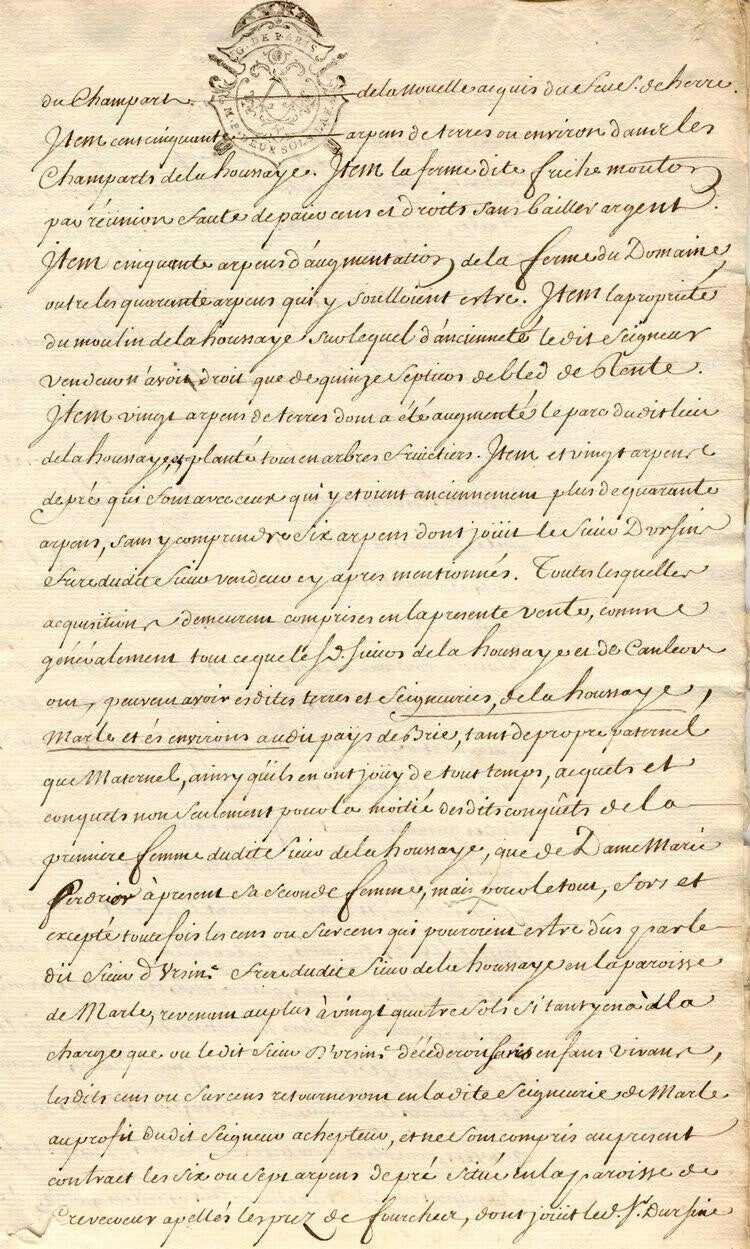 G. DE PARIS
M.P. DEUX SOLS P. FE.
du Champart de la nouvelle acquis du Sieur de herre.
Item cens cinquante arpens de terres ou environ dans les
Champarts de la houssaye. Item la ferme dite friche mouton
par réunion faute de paier cens et droits sans bailler argent.
Item cinquante arpens d'augmentation de la ferme du Domaine
outre les quarante arpens qui y souloient estre. Item la propriété
du moulin de la houssaye sur lequel d'ancienneté le dit Seigneur
vendeur n'avoit droit que de quinze septiers de bled de Rente.
Item vingt arpens de terres dont a été augmenté le parc du dit lieu
de la houssaye, et planté tout en arbres fruictiers. Item et vingt arpens
de pré qui sont avec ceux qui y etoient anciennement plus de quarante
arpens, sans y comprendre six arpens dont joüit le Sieur D'ursine
frere du dit Sieur vendeur cy apres mentionnés. Toutes lesquelles
acquisitions demeurent comprises en la presente vente, comme
généralement tout ce que lesd. sieurs de la houssaye et de
ont, peuvent avoir esdites terres et Seigneuries, de la houssaye,
Marle et és environs audit pays de Brie, tant de propre paternel
que Maternel, ainsy qu'ils en ont joüy de tout temps, acquets et
conquets non seulement pour la moitié desdits conquêts de la
premiere femme du dit Sieur de la houssaye, que de Dame Marie
Perdrier à present sa seconde femme, mais pour le tout, fors et
excepté toutefois les cens ou surcens qui pouroient estre dus par le
dit Sieur d'Ursine frere du dit Sieur de la houssaye en la paroisse
de Marle, revenant au plus à vingt quatre sols si tant y en a à la
charge que ou le dit Sieur D'ursine décéderoit sans enfans vivans,
les dits cens ou surcens retourneront en la dite Seigneurie de Marle
au profit du dit Seigneur achepteur, et ne sont compris au present
contract les six ou sept arpens de pré situé en la paroisse de
Crevecoeur apellés les prez de fourcheir, dont joüit led. Sr. Dursine